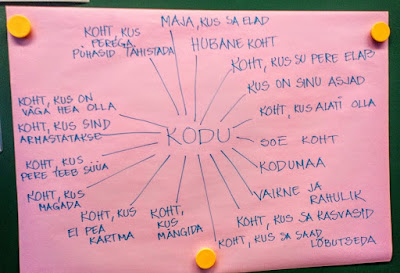 MAJA, KUS SA ELAD
HUBANE KOHT
KOHT, KUS SU PERE ELAB
KUS ON SINU ASJAD
KOHT, KUS ALATI OLLA
SOE KOHT
KODUMAA
VAIKNE JA
RAHULIK
KOHT, KUS SA KASVASID
KOHT, KUS SA SAAD
LÕBUTSEDA
KOHT,
KUS
MÄNGIDA
KOHT, KUS
EI PEA
KARTMA
KOHT, KUS
MAGADA
KOHT, KUS
PERE TEEB SÜÜA
KOHT, KUS SIND
ARMASTATAKSE
KOHT, KUS ON
VÄGA HEA OLLA
KOHT, KUS
PEREGA
PÜHASID TÄHISTADA
KODU